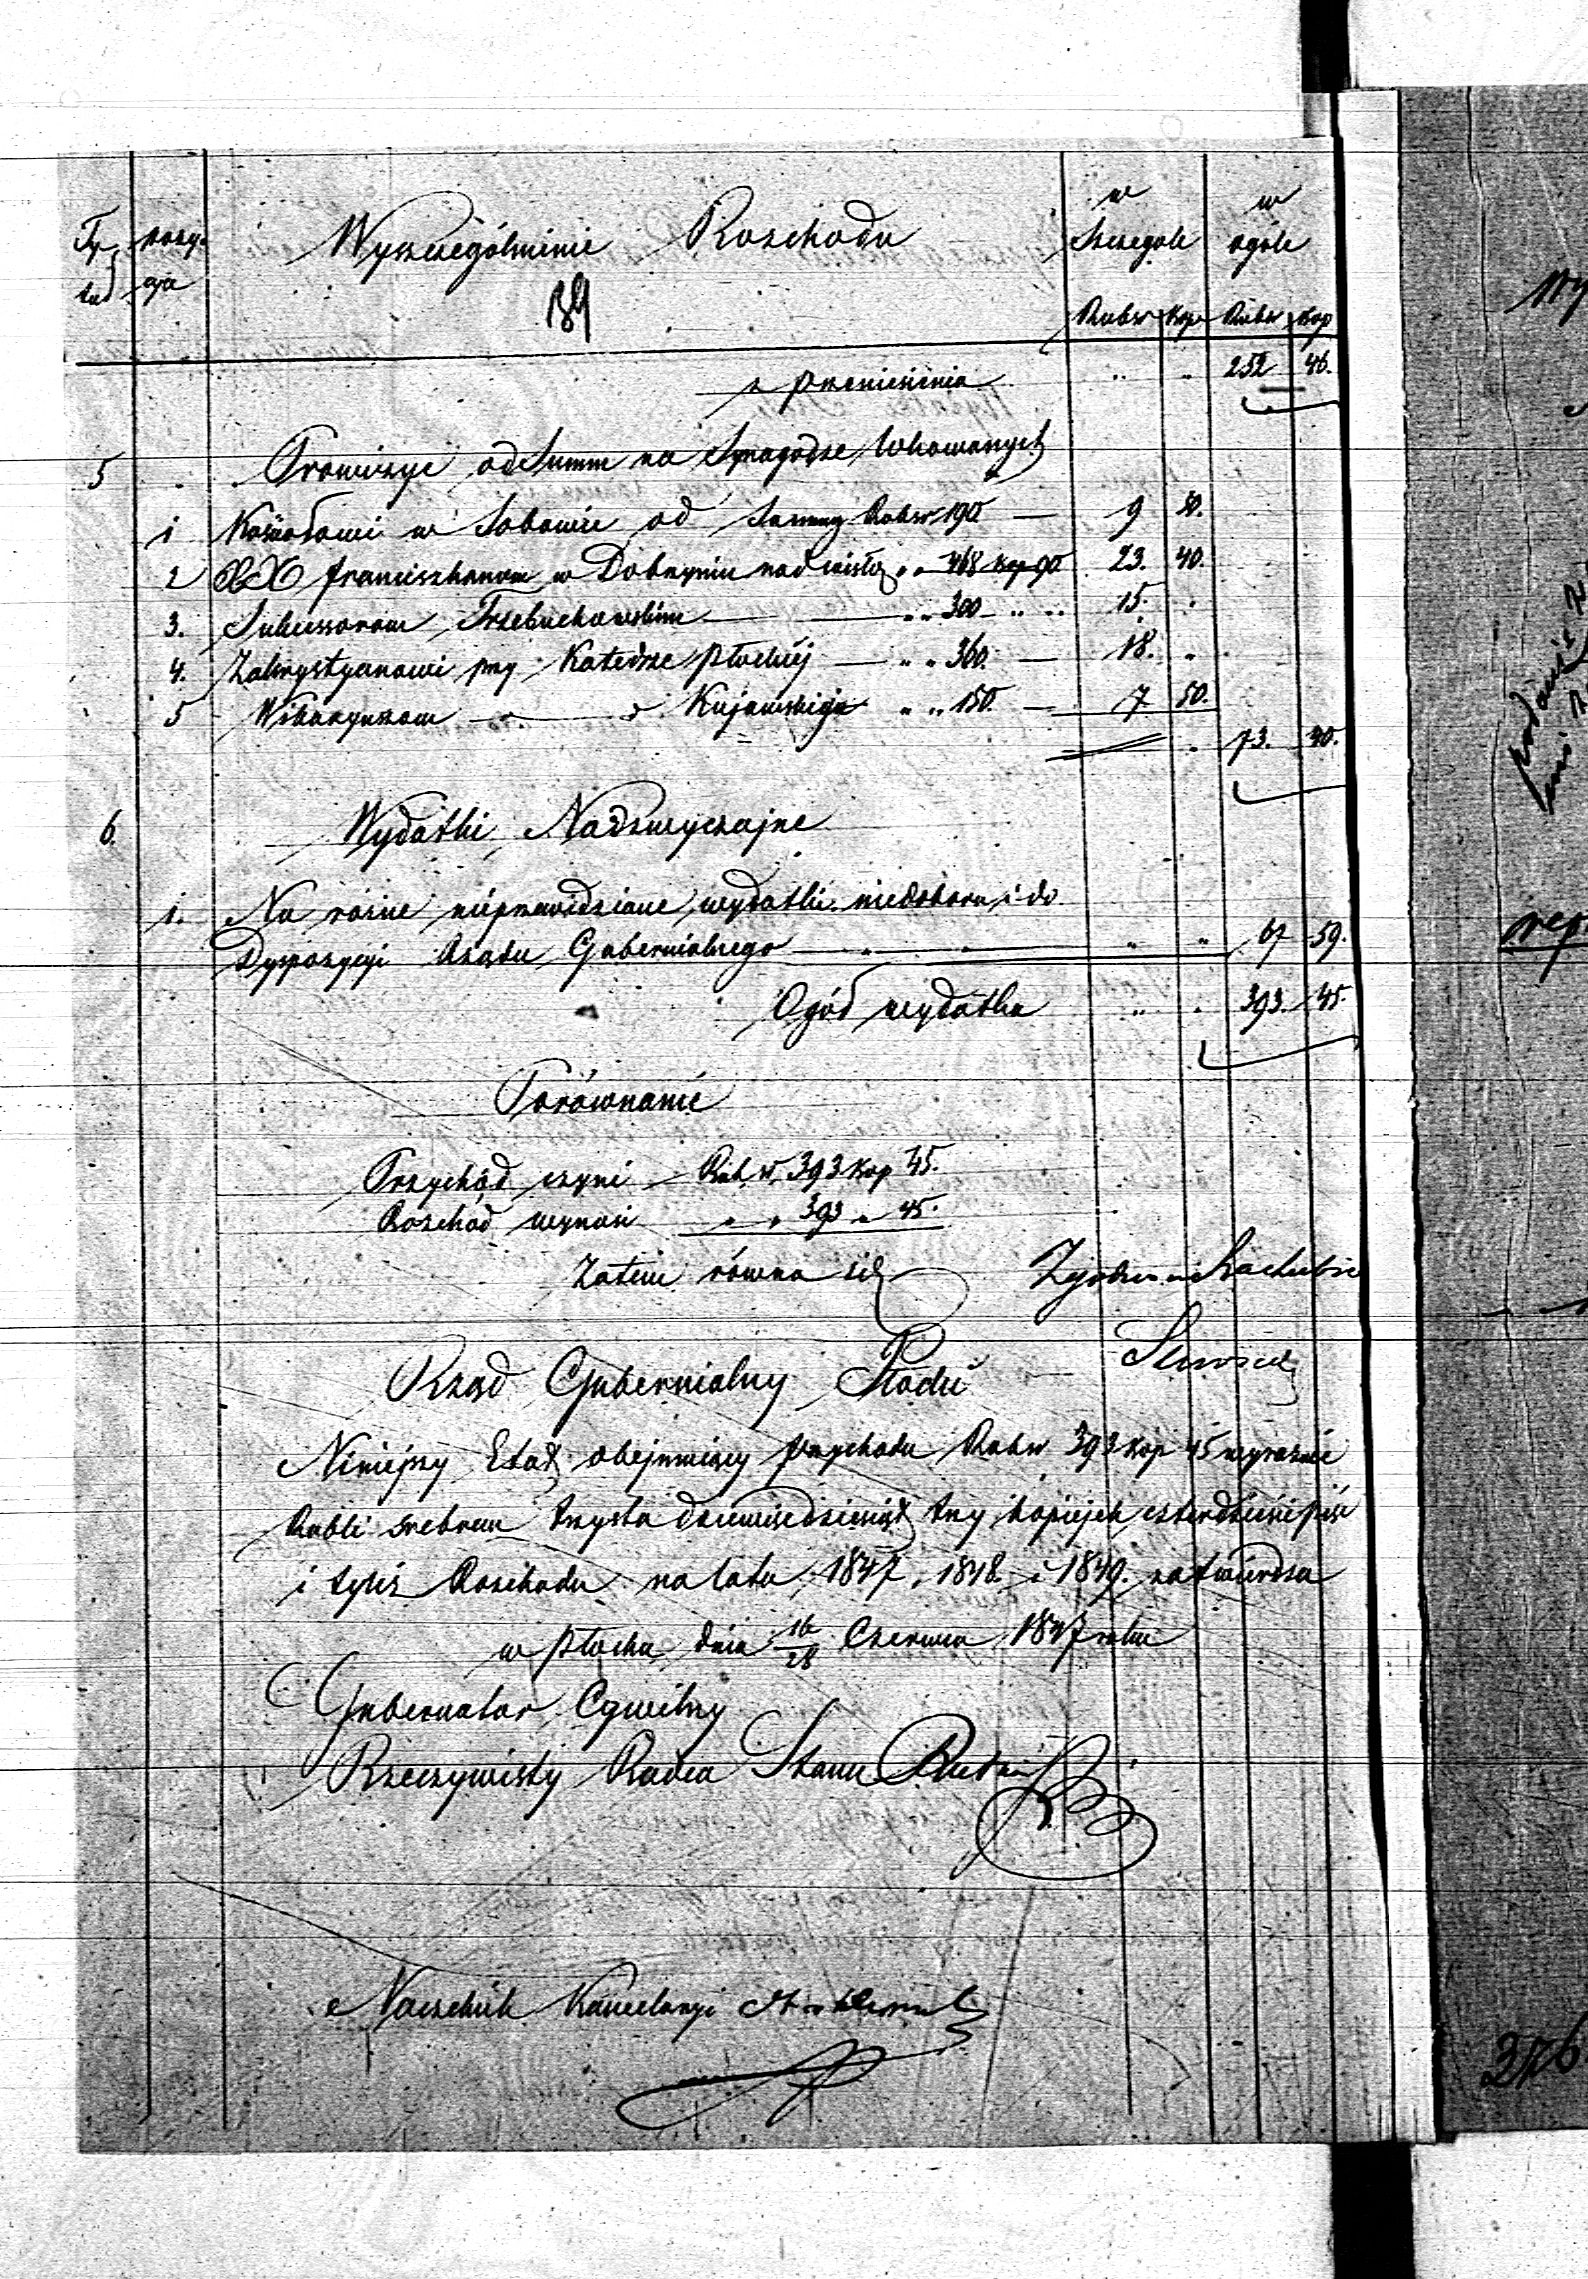 Ty tuł
pozy- cja
Wyszczególnienie Rozchodu
w Szczególe
w ogóle
Rubsr Kop Rubsr Kop
z przeniesienia " " 252 46.
5 Prowizye od Summ na Synagodze lokowanych
1 Kościołowi w Sobowie od Summy Rubsr 190 — 9 50.
2 XX Franciszkanom w Dobrzyniu nad Wisłą " " 468 kop 90 23. 40.
3. Sukcessorom Trzebuchowskim " " 300 " " 15. "
4. Zakrystyanowi przy Katedrze Płockiej — " " 360. — 18. "
5 Wikaryuszom " Kujawskiej " " 150. — 7 50.
" 73. 40.
6. Wydatki Nadzwyczajne
1. Na rożne nieprzewidziane wydatki niedoboru i do
Dyspozycyi Rządu Gubernialnego " " 67 59.
Ogół wydatku " " 393. 45.
Porównanie
Przychód czyni Rubsr 393 kop 45.
Rozchód wynosi " " 393 " 45.
Zatem równa się
Rząd Gubernialny Płocki
Niniejszy Etat obejmujący przychodu Rubsr 393 kop 45 wyraźnie
Rubli srebrem trzysta dziewięćdziesiąt trzy kopiejek czterdzieści pięć
i tyleż Rozchodu na lata 1847, 1848. i 1849. zatwierdza
w Płocku dnia 16/28 Czerwca 1847 roku
Gubernator Cywilny
Rzeczywisty Radca Stanu
Naczelnik Kancelaryi
376